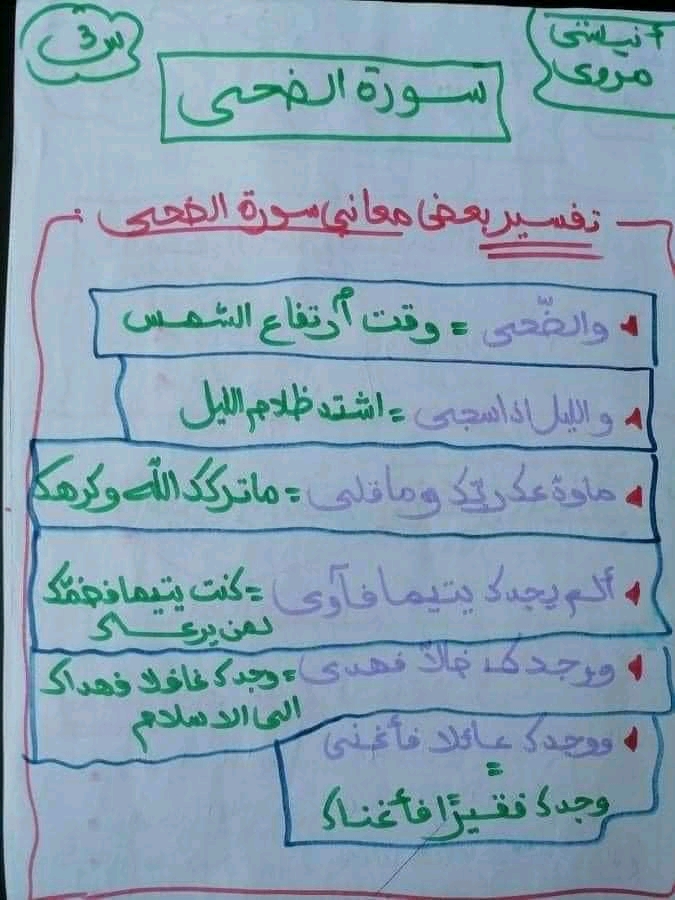 أنيستي
مروى
س3
سورة الضحى
تفسير بعض معاني سورة الضحى
والضّحى = وقت ارتفاع الشمس
والليل اذا سجى = اشتد ظلام الليل
ماودعك ربّك وما قلى = ماتركك الله وكرهك
ألم يجدك يتيما فآوى = كنت يتيما فضمّك
لمن يرعاك
ووجدك ضالا فهدى = وجدك غافلا فهداك
الى الاسلام
ووجدك عائلا فأغنى
=
وجدك فقيرًا فأغناك